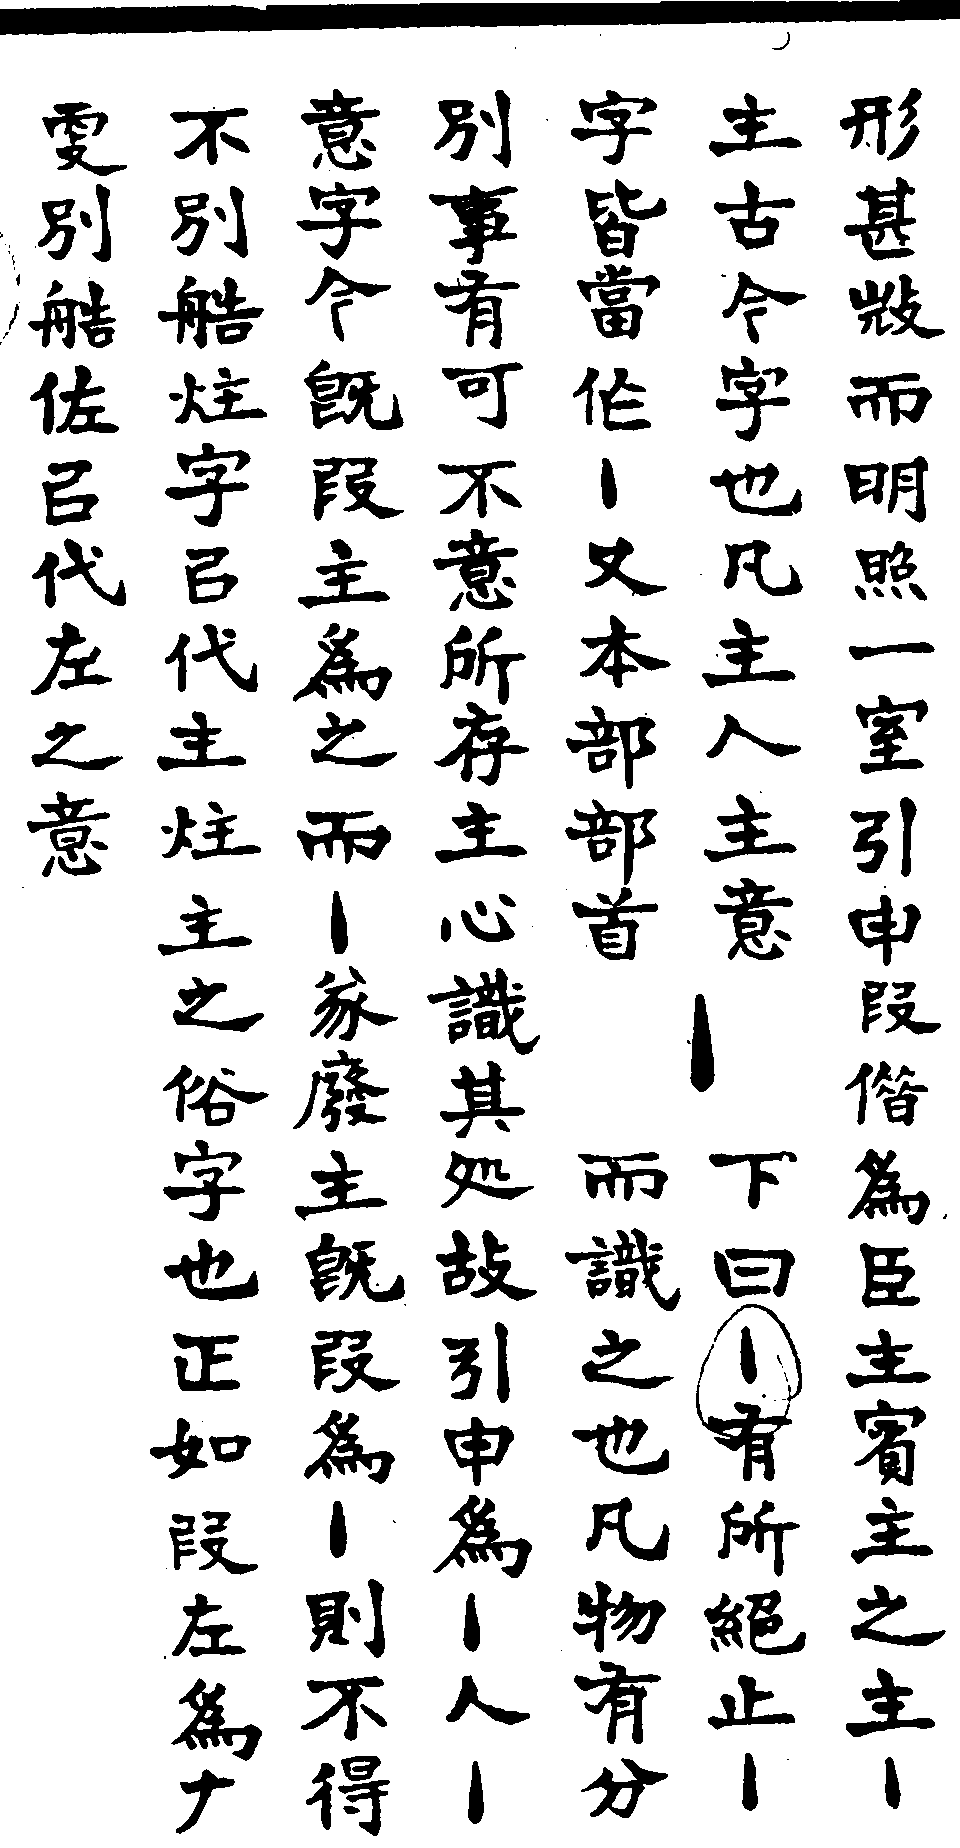 形甚𢼸而明照一室引申叚偕為臣主賓主之主丶
主古今字也凡主人主意丶下曰丶有所絕止丶
字皆當作丶又本部部首而識之也凡物有分
別事有可不意所存主心識其処故引申為丶人丶
意字今既叚主為之而丶㒸廢主既叚為丶則不得
不別艁炷字㠯代主炷主之俗字也正如叚左為𠂇
別艁佐㠯代左之意